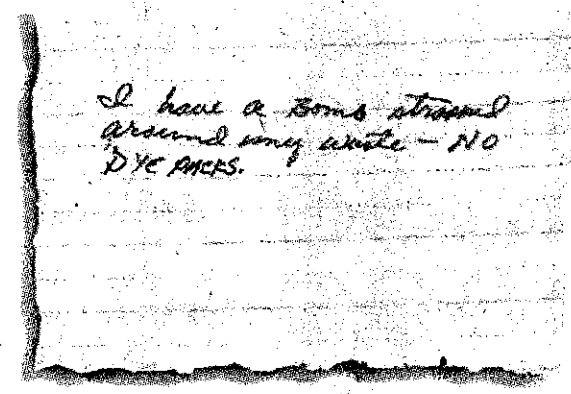 I have a Bomb strapped
around my waste - NO
DYE PACKS.